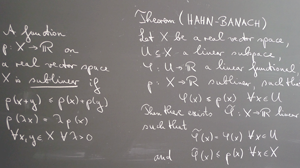 A function
p: X → ℝ on
a real vector space
X is sublinear if
p(x+y) ≤ p(x)+p(y)
p(λx) = λp(x)
∀x,y∈X ∀λ>0
Theorem (HAHN-BANACH)
Let X be a real vector space,
U ⊆ X a linear subspace,
φ: U → ℝ a linear functional,
p: X → ℝ sublinear, such that
φ(x) ≤ p(x) ∀x∈U
Then there exists φ̃: X → ℝ linear
such that
φ̃(x) = φ(x) ∀x∈U
and φ̃(x) ≤ p(x) ∀x∈X